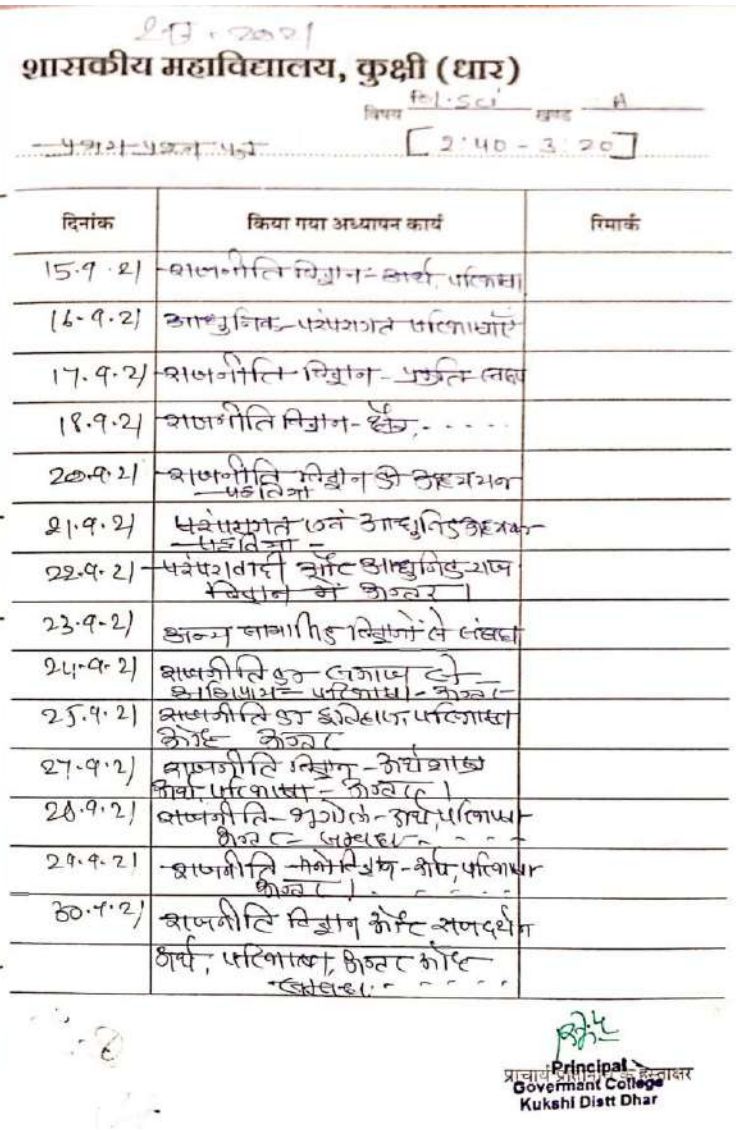 2021
शासकीय महाविद्यालय, कुक्षी (धार)
विषय Pol. Sci खण्ड A
प्रथम प्रश्न पत्र [ 2:40 - 3:20 ]
दिनांक किया गया अध्यापन कार्य रिमार्क
15.9.21 राजनीति विज्ञान - अर्थ, परिभाषा
16.9.21 आधुनिक - परंपरागत परिभाषाएँ
17.9.21 राजनीति विज्ञान - प्रकृति स्वरूप
18.9.21 राजनीति विज्ञान - क्षेत्र, - - - - -
20.9.21 राजनीति विज्ञान की अध्ययन
पद्धतियां
21.9.21 परंपरागत एवं आधुनिक अध्ययन
पद्धतियां -
22.9.21 परंपरावादी और आधुनिक राज
विज्ञान में अन्तर ।
23.9.21 अन्य सामाजिक विज्ञानों से संबंध
24.9.21 राजनीति का समाज से
अभिप्राय - परिभाषा - अन्तर
25.9.21 राजनीति का इतिहास, परिभाषा
और अन्तर
27.9.21 राजनीति विज्ञान - अर्थशास्त्र
अर्थ, परिभाषा - अन्तर ।
28.9.21 राजनीति - भूगोल - अर्थ, परिभाषा
अन्तर - सम्बन्ध - - - -
29.9.21 राजनीति - मनोविज्ञान - अर्थ, परिभाषा
अन्तर । - - - - -
30.9.21 राजनीति विज्ञान और राजदर्शन
अर्थ, परिभाषा, अन्तर और
सम्बन्ध - - - - -
प्राचार्य के हस्ताक्षर
Principal
Goverment College
Kukshi Distt Dhar